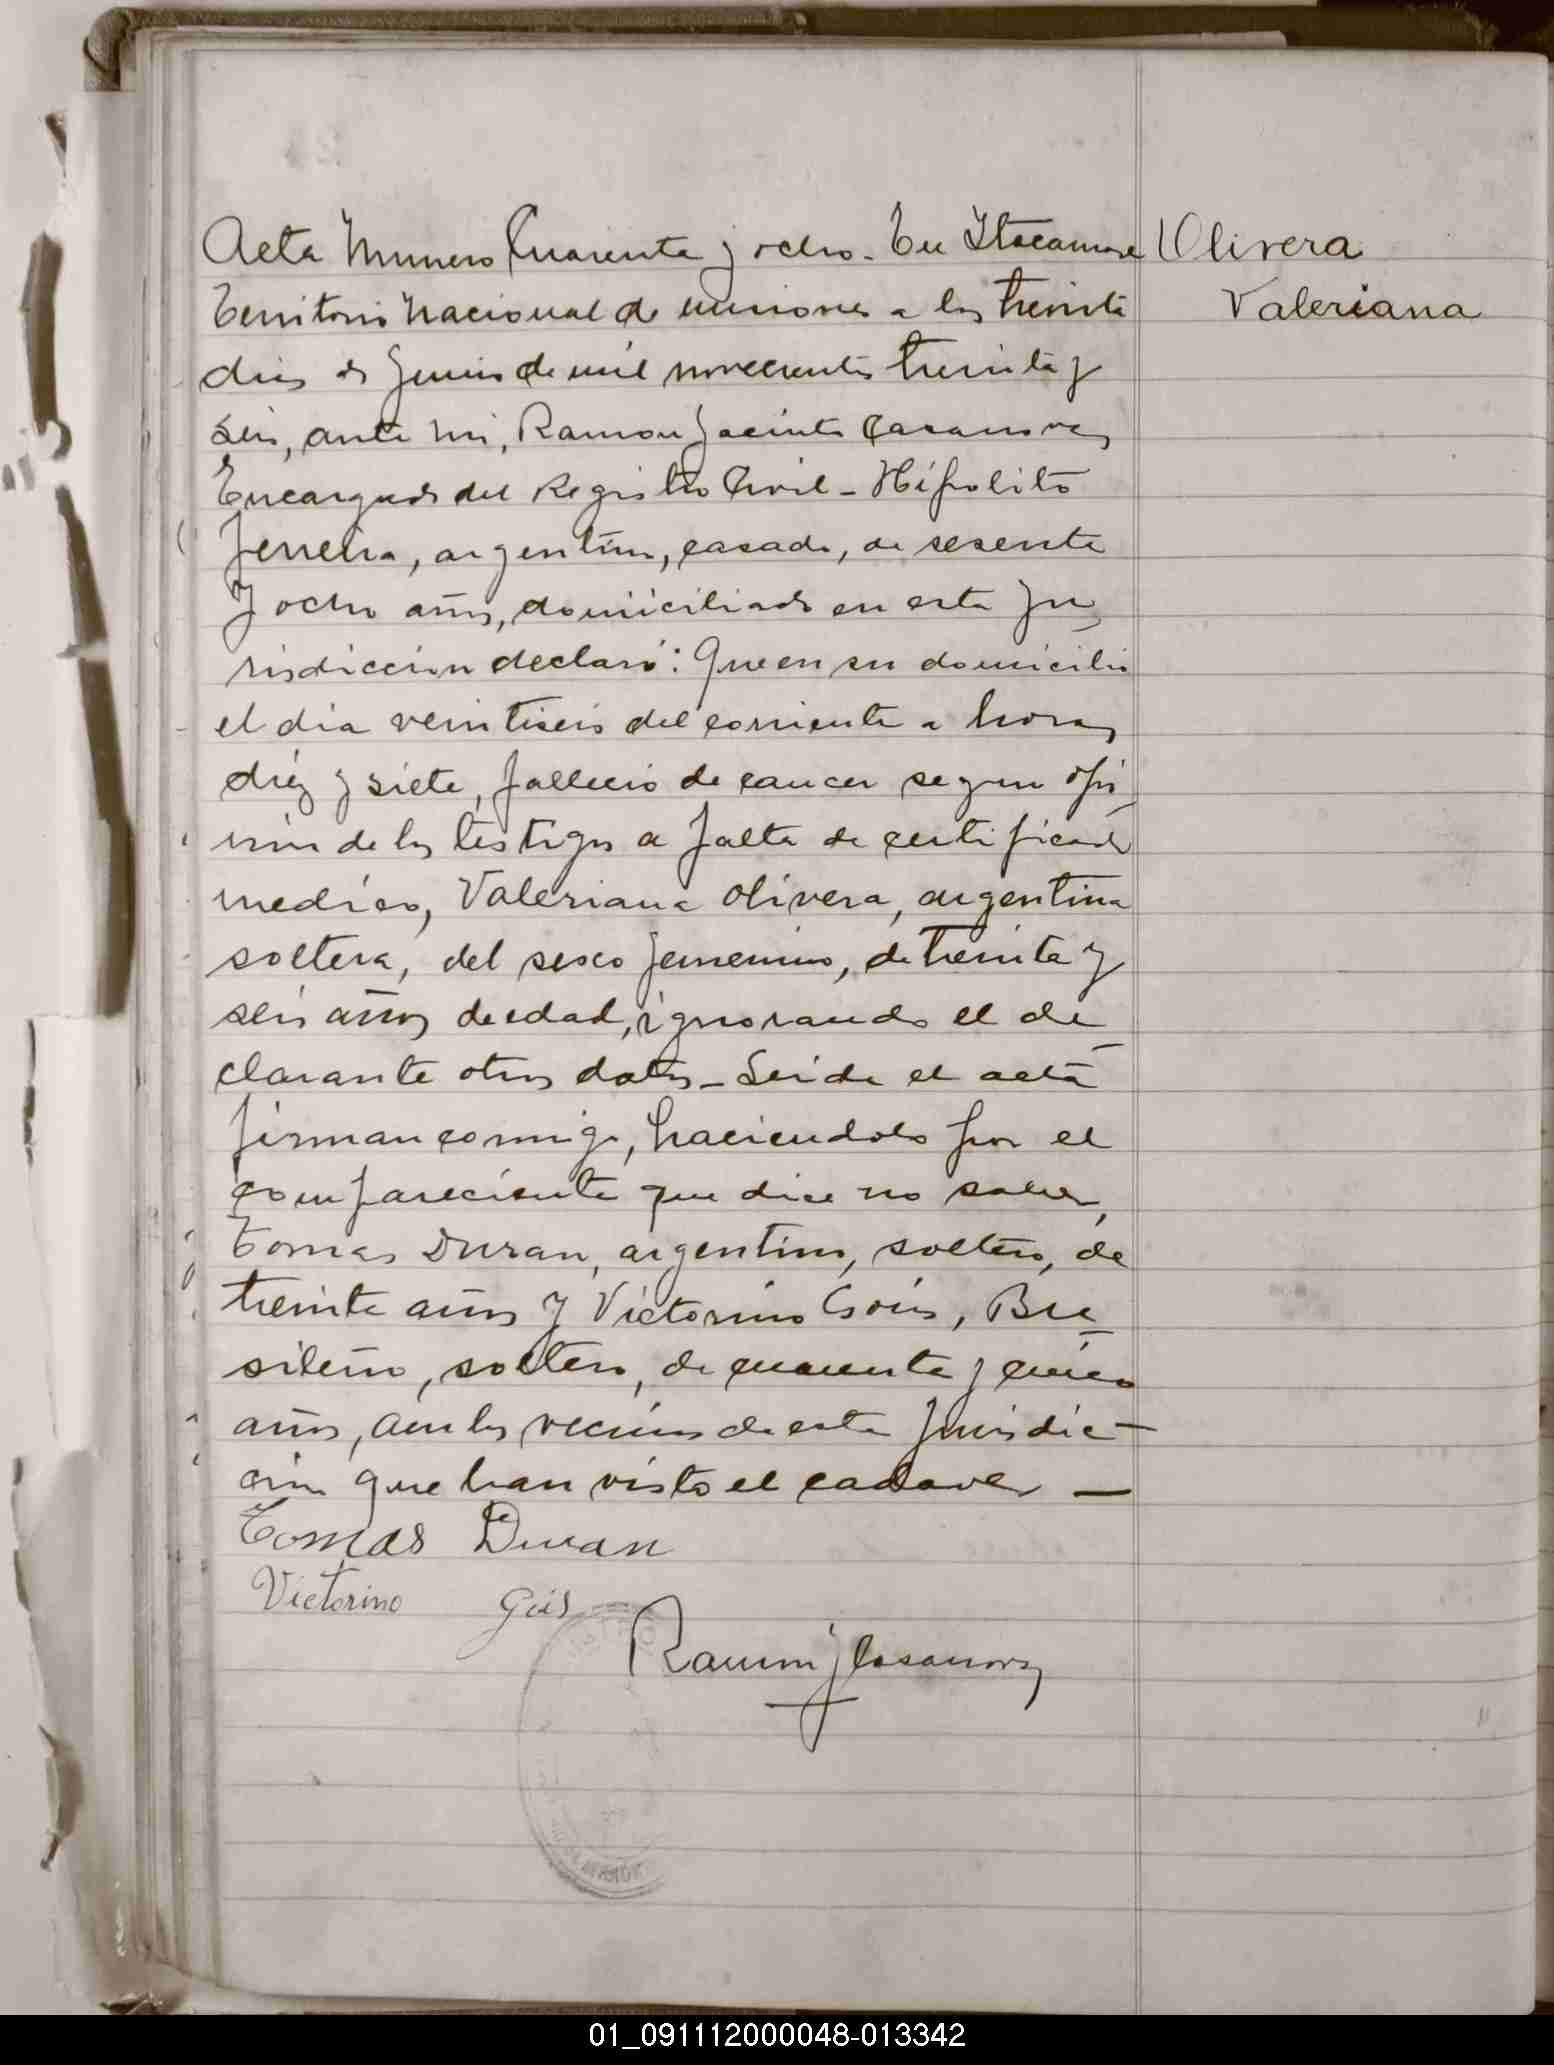 Acta Numero Cuarenta y ocho. En Itacaruare
Territorio Nacional de Misiones a los treinta
dias de Junio de mil novecientos treinta y
seis, ante mi, Ramon Jacinto Casanova,
Encargado del Registro Civil - Hipolito
Ferreira, argentino, casado, de sesenta
y ocho años, domiciliado en esta Ju-
risdiccion declaró: Que en su domicilio
el dia veintiseis del corriente a horas
diez y siete, fallecio de cancer segun opi-
nion de los testigos a falta de certificado
medico, Valeriana Olivera, argentina
soltera, del sexo femenino, de treinta y
seis años de edad, ignorando el de-
clarante otros datos - Leida el acta
firman conmigo, haciendolo por el
compareciente que dice no saber,
Tomas Duran, argentino, soltero, de
treinta años y Victorino Góis, Bra-
sileño, soltero, de cuarenta y cinco
años, ambos vecinos de esta Jurisdic-
cion que han visto el cadaver —
Tomas Duran
Victorino Gois
Ramon J Casanova
Olivera
Valeriana
01_091112000048-013342